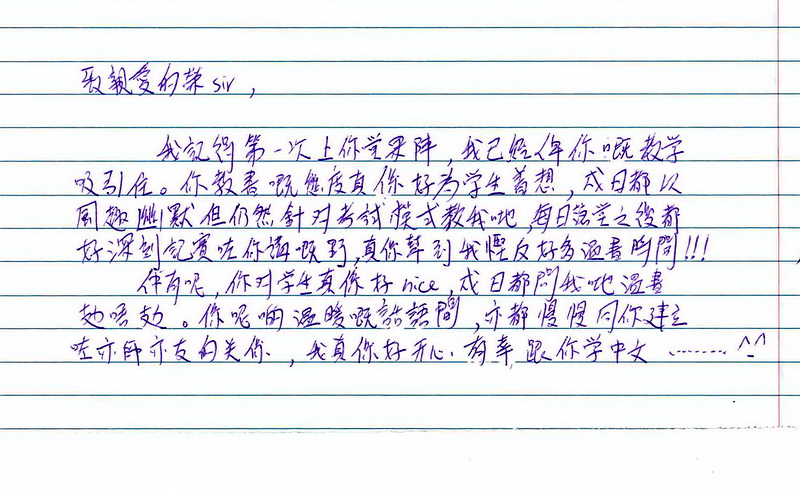 致親愛的荣sir，
我記得第一次上你堂果陣，我已經俾你嘅教学
吸引住。你教書嘅態度真係好為学生着想，成日都以
風趣幽默但仍然針对考試模式教我哋，每日落堂之後都
好深刻記實咗你講嘅野，真係幫到我慳反好多溫書時間!!!
仲有呢，你对学生真係好nice，成日都問我哋溫書
攰唔攰。係呢啲溫暖嘅說話語間，亦都慢慢同你建立
咗亦師亦友的关係，我真係好开心有幸跟你学中文........^_^